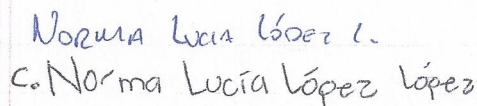 NORMA LUCIA LÓPEZ L.
C. Norma Lucía López López